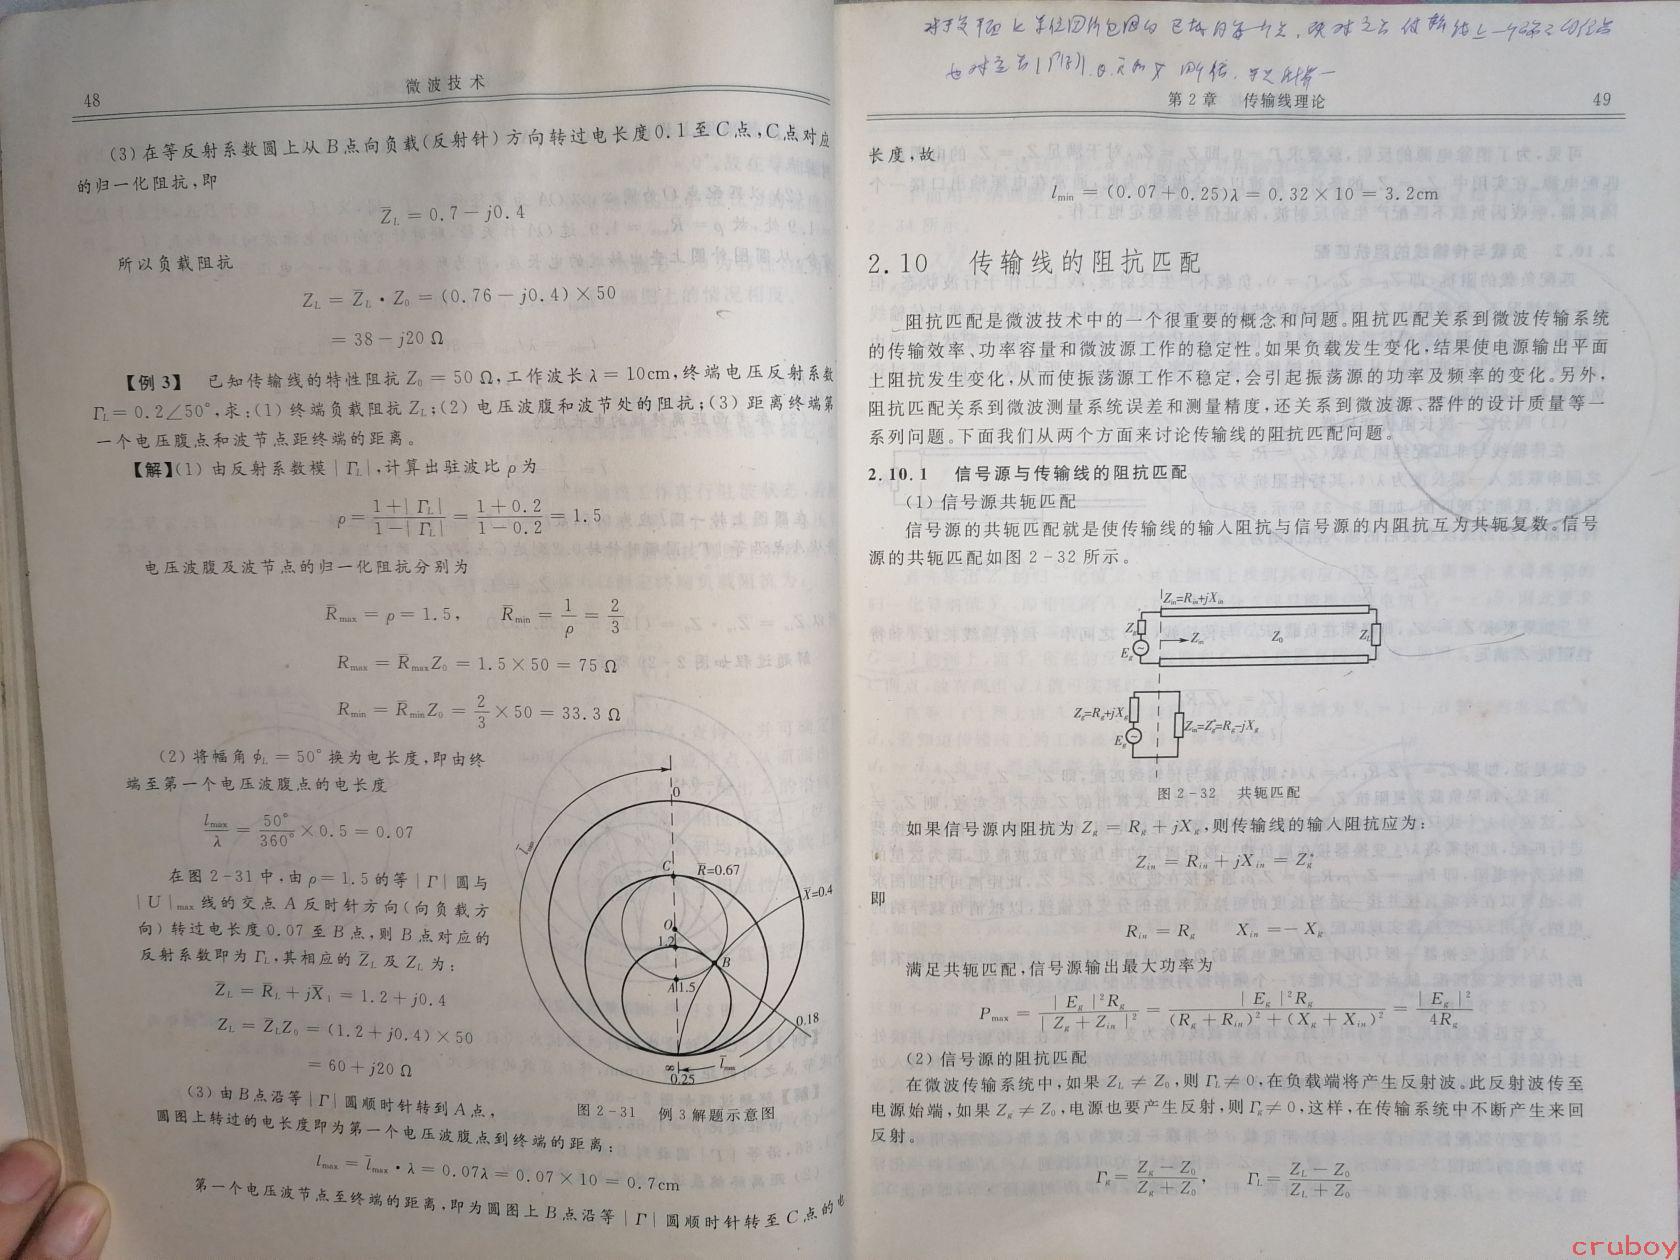 48
微波技术
(3)在等反射系数圆上从B点向负载(反射针)方向转过电长度0.1至C点,C点对应
的归一化阻抗,即
Z̅L = 0.7 − j0.4
所以负载阻抗
ZL = Z̅L · Z0 = (0.76 − j0.4) × 50
= 38 − j20 Ω
【例3】 已知传输线的特性阻抗Z0 = 50 Ω,工作波长λ = 10cm,终端电压反射系数
ΓL = 0.2∠50°,求:(1)终端负载阻抗ZL;(2)电压波腹和波节处的阻抗;(3)距离终端第
一个电压腹点和波节点距终端的距离。
【解】(1)由反射系数模|ΓL|,计算出驻波比ρ为
ρ = (1+|ΓL|)/(1−|ΓL|) = (1+0.2)/(1−0.2) = 1.5
电压波腹及波节点的归一化阻抗分别为
R̅max = ρ = 1.5, R̅min = 1/ρ = 2/3
Rmax = R̅maxZ0 = 1.5 × 50 = 75 Ω
Rmin = R̅minZ0 = 2/3 × 50 = 33.3 Ω
(2)将幅角φL = 50°换为电长度,即由终
端至第一个电压波腹点的电长度
lmax/λ = 50°/360° × 0.5 = 0.07
在图2-31中,由ρ = 1.5的等|Γ|圆与
|U|max线的交点A反时针方向(向负载方
向)转过电长度0.07至B点,则B点对应的
反射系数即为ΓL,其相应的Z̅L及ZL为:
Z̅L = R̅L + jX̅1 = 1.2 + j0.4
ZL = Z̅LZ0 = (1.2 + j0.4) × 50
= 60 + j20 Ω
(3)由B点沿等|Γ|圆顺时针转到A点,
圆图上转过的电长度即为第一个电压波腹点到终端的距离:
lmax = l̅max · λ = 0.07λ = 0.07 × 10 = 0.7cm
第一个电压波节点至终端的距离,即为圆图上B点沿等|Γ|圆顺时针转至C点的电
0
C
R̅=0.67
X̅=0.4
O
1.2
B
A
1.5
0.18
l̅min
l̅max
∞
0.25
图2-31 例3解题示意图
第2章 传输线理论
49
长度,故
lmin = (0.07 + 0.25)λ = 0.32 × 10 = 3.2cm
2.10 传输线的阻抗匹配
阻抗匹配是微波技术中的一个很重要的概念和问题。阻抗匹配关系到微波传输系统
的传输效率、功率容量和微波源工作的稳定性。如果负载发生变化,结果使电源输出平面
上阻抗发生变化,从而使振荡源工作不稳定,会引起振荡源的功率及频率的变化。另外,
阻抗匹配关系到微波测量系统误差和测量精度,还关系到微波源、器件的设计质量等一
系列问题。下面我们从两个方面来讨论传输线的阻抗匹配问题。
2.10.1 信号源与传输线的阻抗匹配
(1)信号源共轭匹配
信号源的共轭匹配就是使传输线的输入阻抗与信号源的内阻抗互为共轭复数。信号
源的共轭匹配如图2-32所示。
Zin=Rin+jXin
Zg
Eg
Zin
Z0
ZL
Zg=Rg+jXg
Eg
Zin=Zg*=Rg-jXg
图2-32 共轭匹配
如果信号源内阻抗为Zg = Rg + jXg,则传输线的输入阻抗应为:
Zin = Rin + jXin = Zg*
即
Rin = Rg Xin = − Xg
满足共轭匹配,信号源输出最大功率为
Pmax = |Eg|²Rg/|Zg + Zin|² = |Eg|²Rg/((Rg + Rin)² + (Xg + Xin)²) = |Eg|²/4Rg
(2)信号源的阻抗匹配
在微波传输系统中,如果ZL ≠ Z0,则ΓL ≠ 0,在负载端将产生反射波。此反射波传至
电源始端,如果Zg ≠ Z0,电源也要产生反射,则Γg ≠ 0,这样,在传输系统中不断产生来回
反射。
Γg = (Zg − Z0)/(Zg + Z0), ΓL = (ZL − Z0)/(ZL + Z0)
cruboy